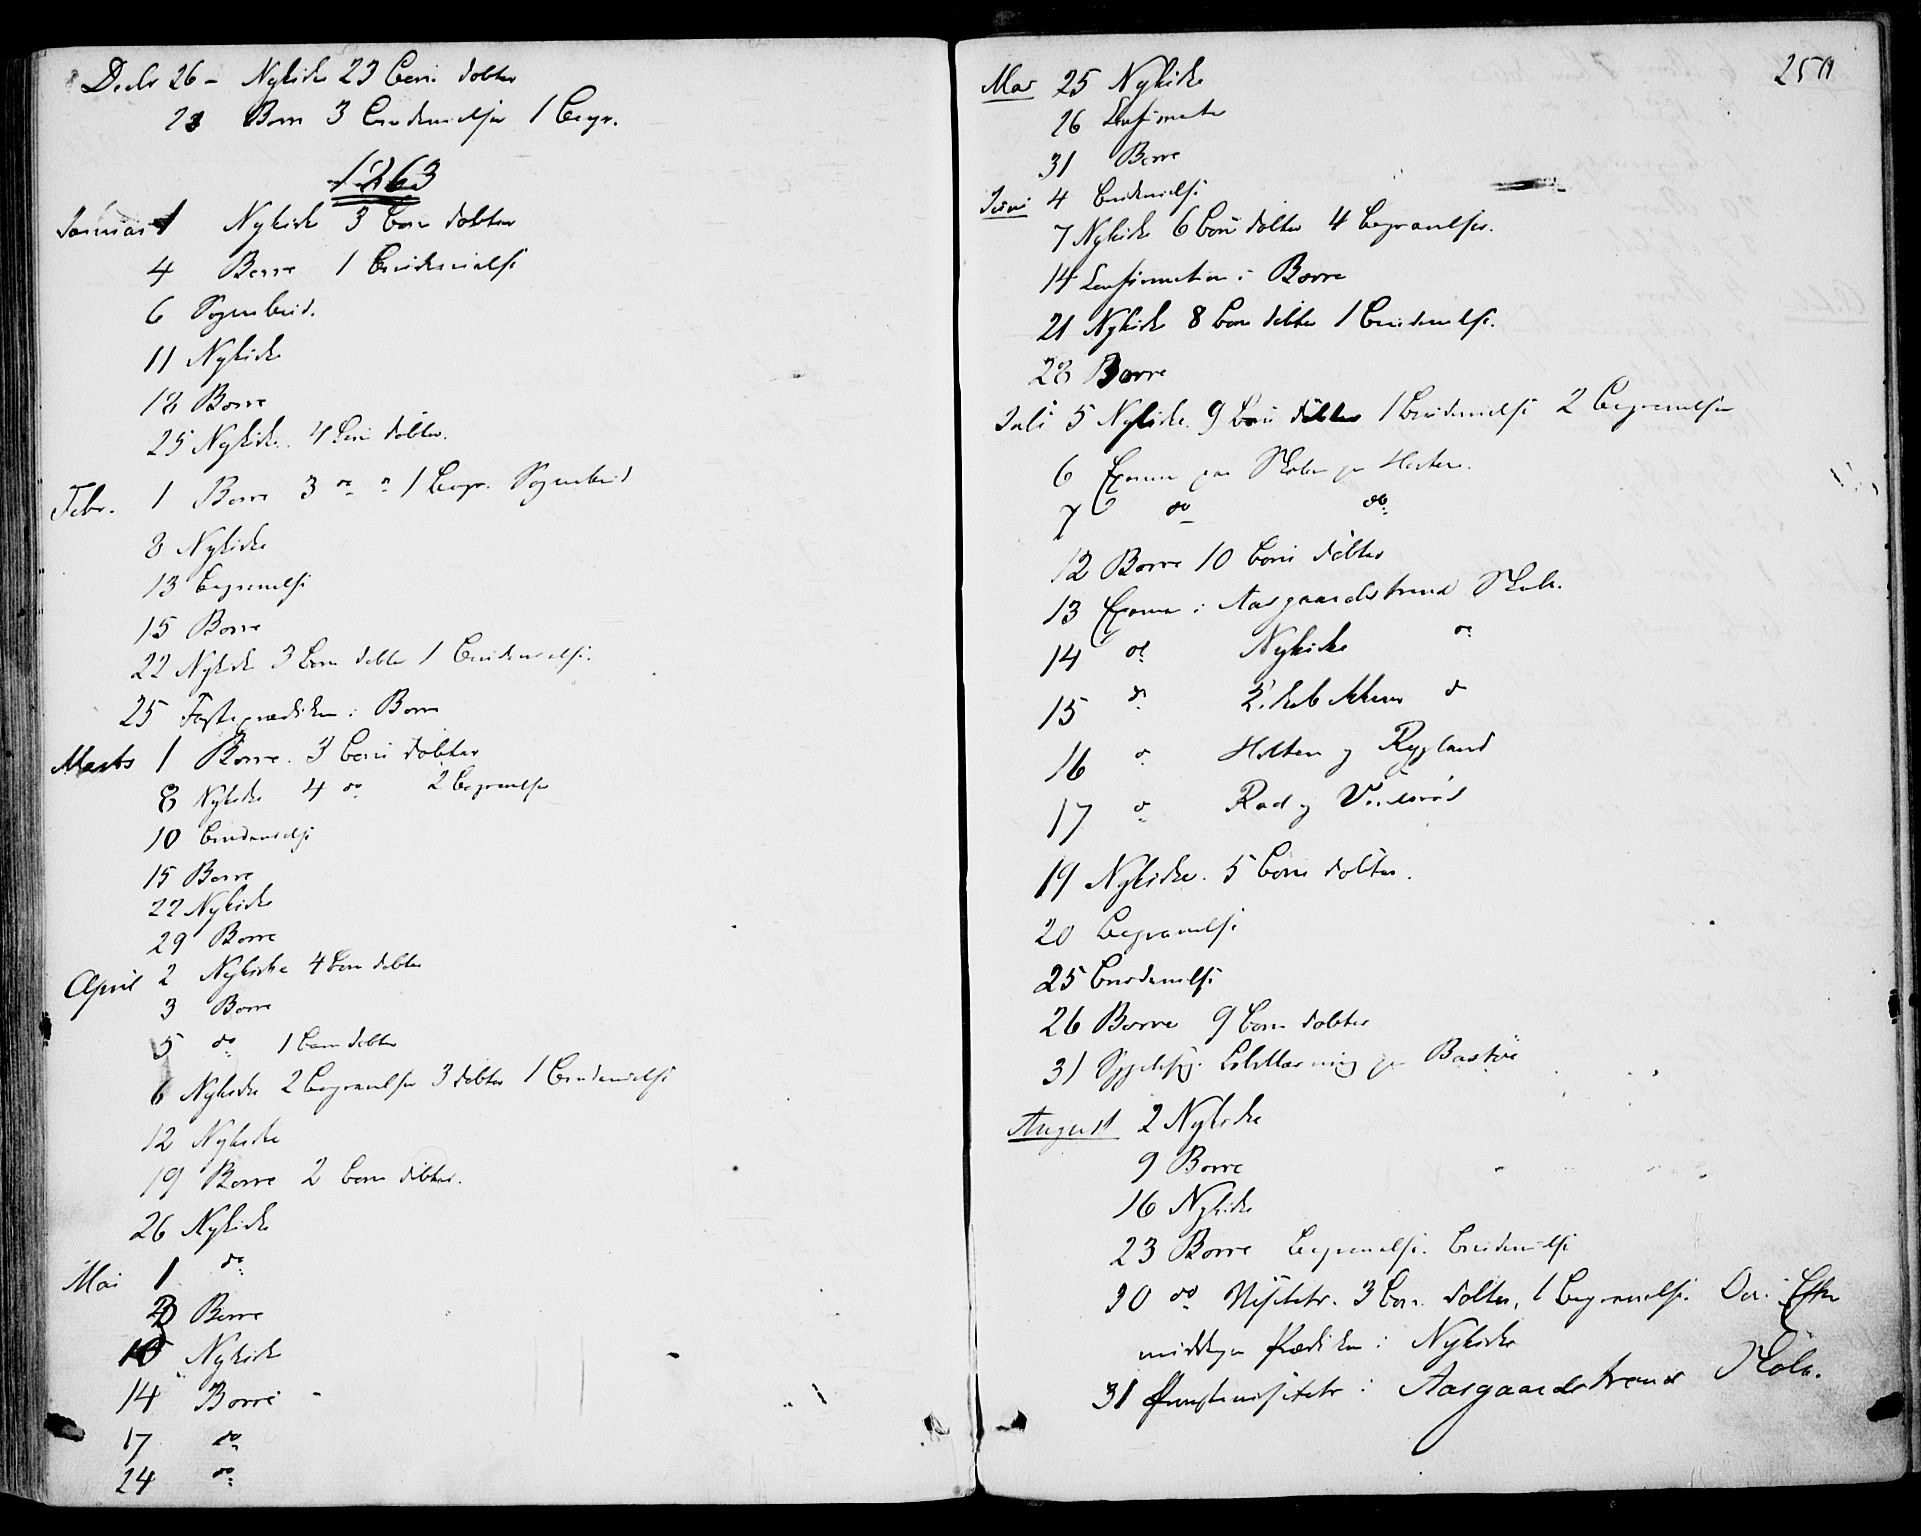 Decbr 26 - Nykirke 23 børn døbte
28 Borre 3 brudevielser 1 begr.
1863
Januar 1 Nykirke 3 børn døbte
4 Borre 1 brudevielse
6 Sognebud.
11 Nykirke
18 Borre
25 Nykirke. 4 børn døbte.
Febr. 1 Borre 3 do 1 begr. Sognebud
8 Nykirke
13 begravelse
15 Borre
22 Nykirke 3 børn døbte 1 brudevielse.
25 Fasteprædiken i Borre
Marts 1 Borre. 3 børn døbte
8 Nykirke 4 do 2 begravelser
10 brudevielse
15 Borre
22 Nykirke
29 Borre
April 2 Nykirke 4 børn døbte
3 Borre
5 do 1 barn døbt
6 Nykirke 2 begravelser 3 døbte 1 brudevielse
12 Nykirke
19 Borre 2 børn døbte.
26 Nykirke
Mai 1 do
Borre
10 Nykirke
14 Borre
17 do
24 do
250
Mai 25 Nykirke
26
31 Borre
Juni 4 brudevielse
7 Nykirke 6 børn døbte 4 begravelser.
14 Confirmation i Borre
21 Nykirke 8 børn døbte 1 brudevielse.
28 Borre
Juli 5 Nykirke. 9 børn døbte 1 brudevielse 2 begravelser
6 Examen paa Skolen paa Horten.
7 do do
12 Borre 10 børn døbte
13 Examen i Aasgaardstrand Skole.
14 do Nykirke do
15 do do
16 do Holtan og Rygland
17 do Rød og
19 Nykirke. 5 børn døbte.
20 begravelse
25 brudevielse
26 Borre 9 børn døbte
31 paa Bastøe
August 2 Nykirke
9 Borre
16 Nykirke
23 Borre begravelse. brudevielse
30 do Visitats. 3 børn døbte, 1 begravelse. Om Efter
middagen Prædiken i Nykirke
31 Provstevisitats i Aasgaardstrand Skole.